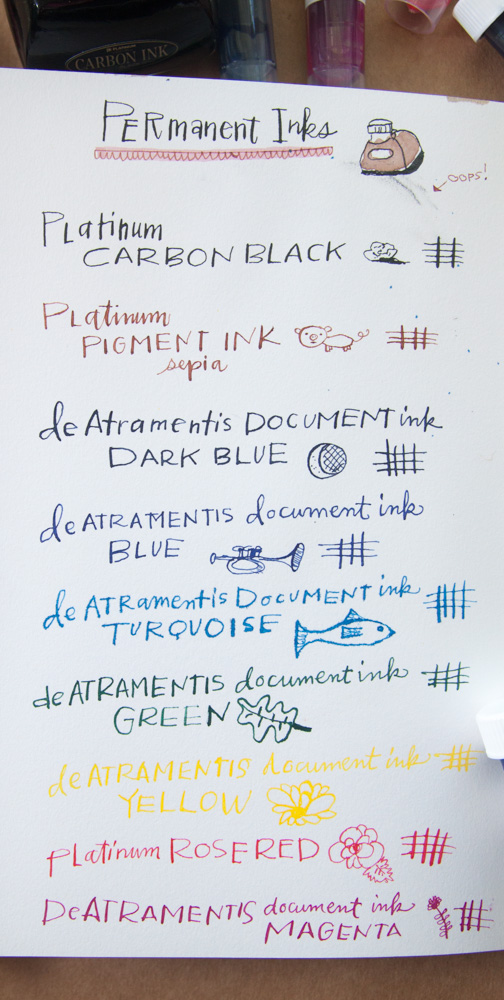 CARBON INK
PERmanent Inks
OOPS!
PLatinum
CARBON BLACK
PLatinum
PIGMENT INK
sepia
de Atramentis DOCUMENT ink
DARK BLUE
de ATRAMENTIS document ink
BLUE
de ATRamentis DOCUMENT ink
TURQUOISE
de ATRAMENTIS document ink
GREEN
de ATRAMENTIS document ink
YELLOW
PLatinum ROSE RED
DeATRAMENTIS document ink
MAGENTA